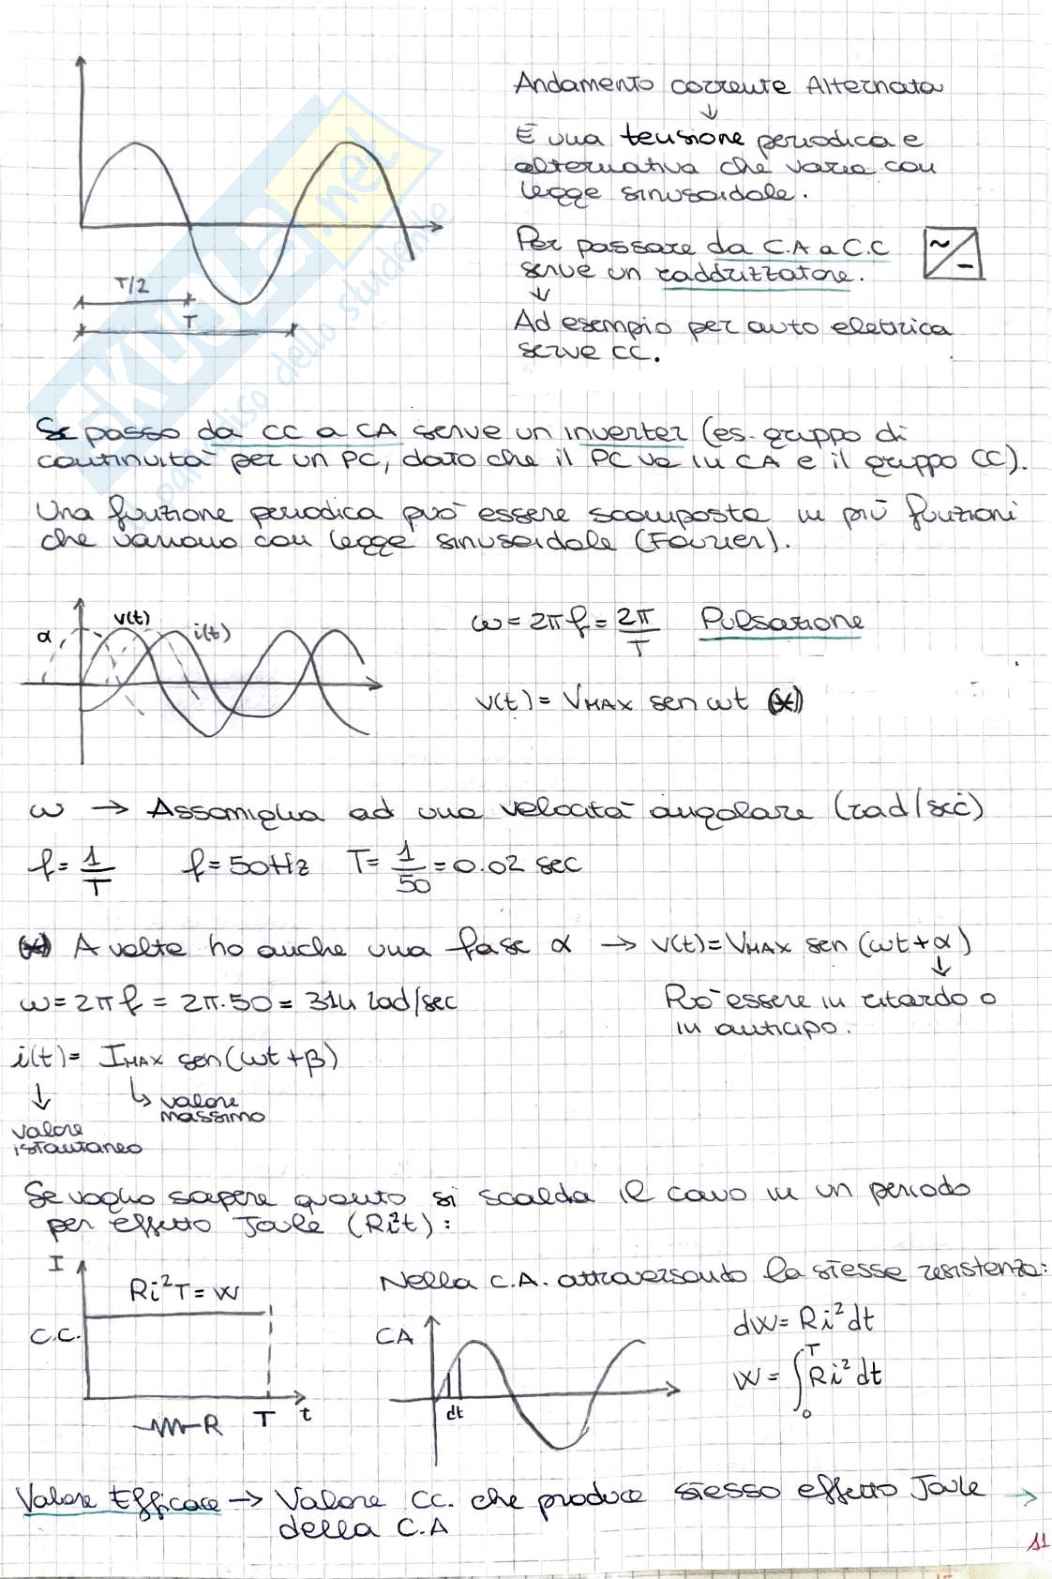 Andamento corrente Alternata
↓
È una tensione periodica e
alternativa che varia con
legge sinusoidale.
Per passare da C.A a C.C
serve un raddrizzatore.
~
-
↓
Ad esempio per auto elettrica
serve CC.
T/2
T
Se passo da CC a CA serve un inverter (es. gruppo di
continuità per un PC, dato che il PC va in CA e il gruppo CC).
Una funzione periodica può essere scomposta in più funzioni
che variano con legge sinusoidale (Fourier).
α
v(t)
i(t)
ω = 2πf = 2π/T Pulsazione
v(t) = VMAX sen ωt (*)
ω → Assomiglia ad una velocità angolare (rad/sec)
f = 1/T f = 50Hz T = 1/50 = 0.02 sec
(*) A volte ho anche una fase α → v(t) = VMAX sen (ωt + α)
↓
ω = 2πf = 2π·50 = 314 rad/sec
Può essere in ritardo o
in anticipo.
i(t) = IMAX sen(ωt + β)
↓ ↳ valore
massimo
valore
istantaneo
Se voglio sapere quanto si scalda il cavo in un periodo
per effetto Joule (Ri²t):
I
Ri²T = W
C.C.
R
T
t
Nella C.A. attraversando la stessa resistenza:
CA
dt
dW = Ri²dt
W = ∫₀ᵀ Ri² dt
Valore Efficace → Valore CC. che produce stesso effetto Joule →
della C.A
11
skuola.net
paradiso dello studente